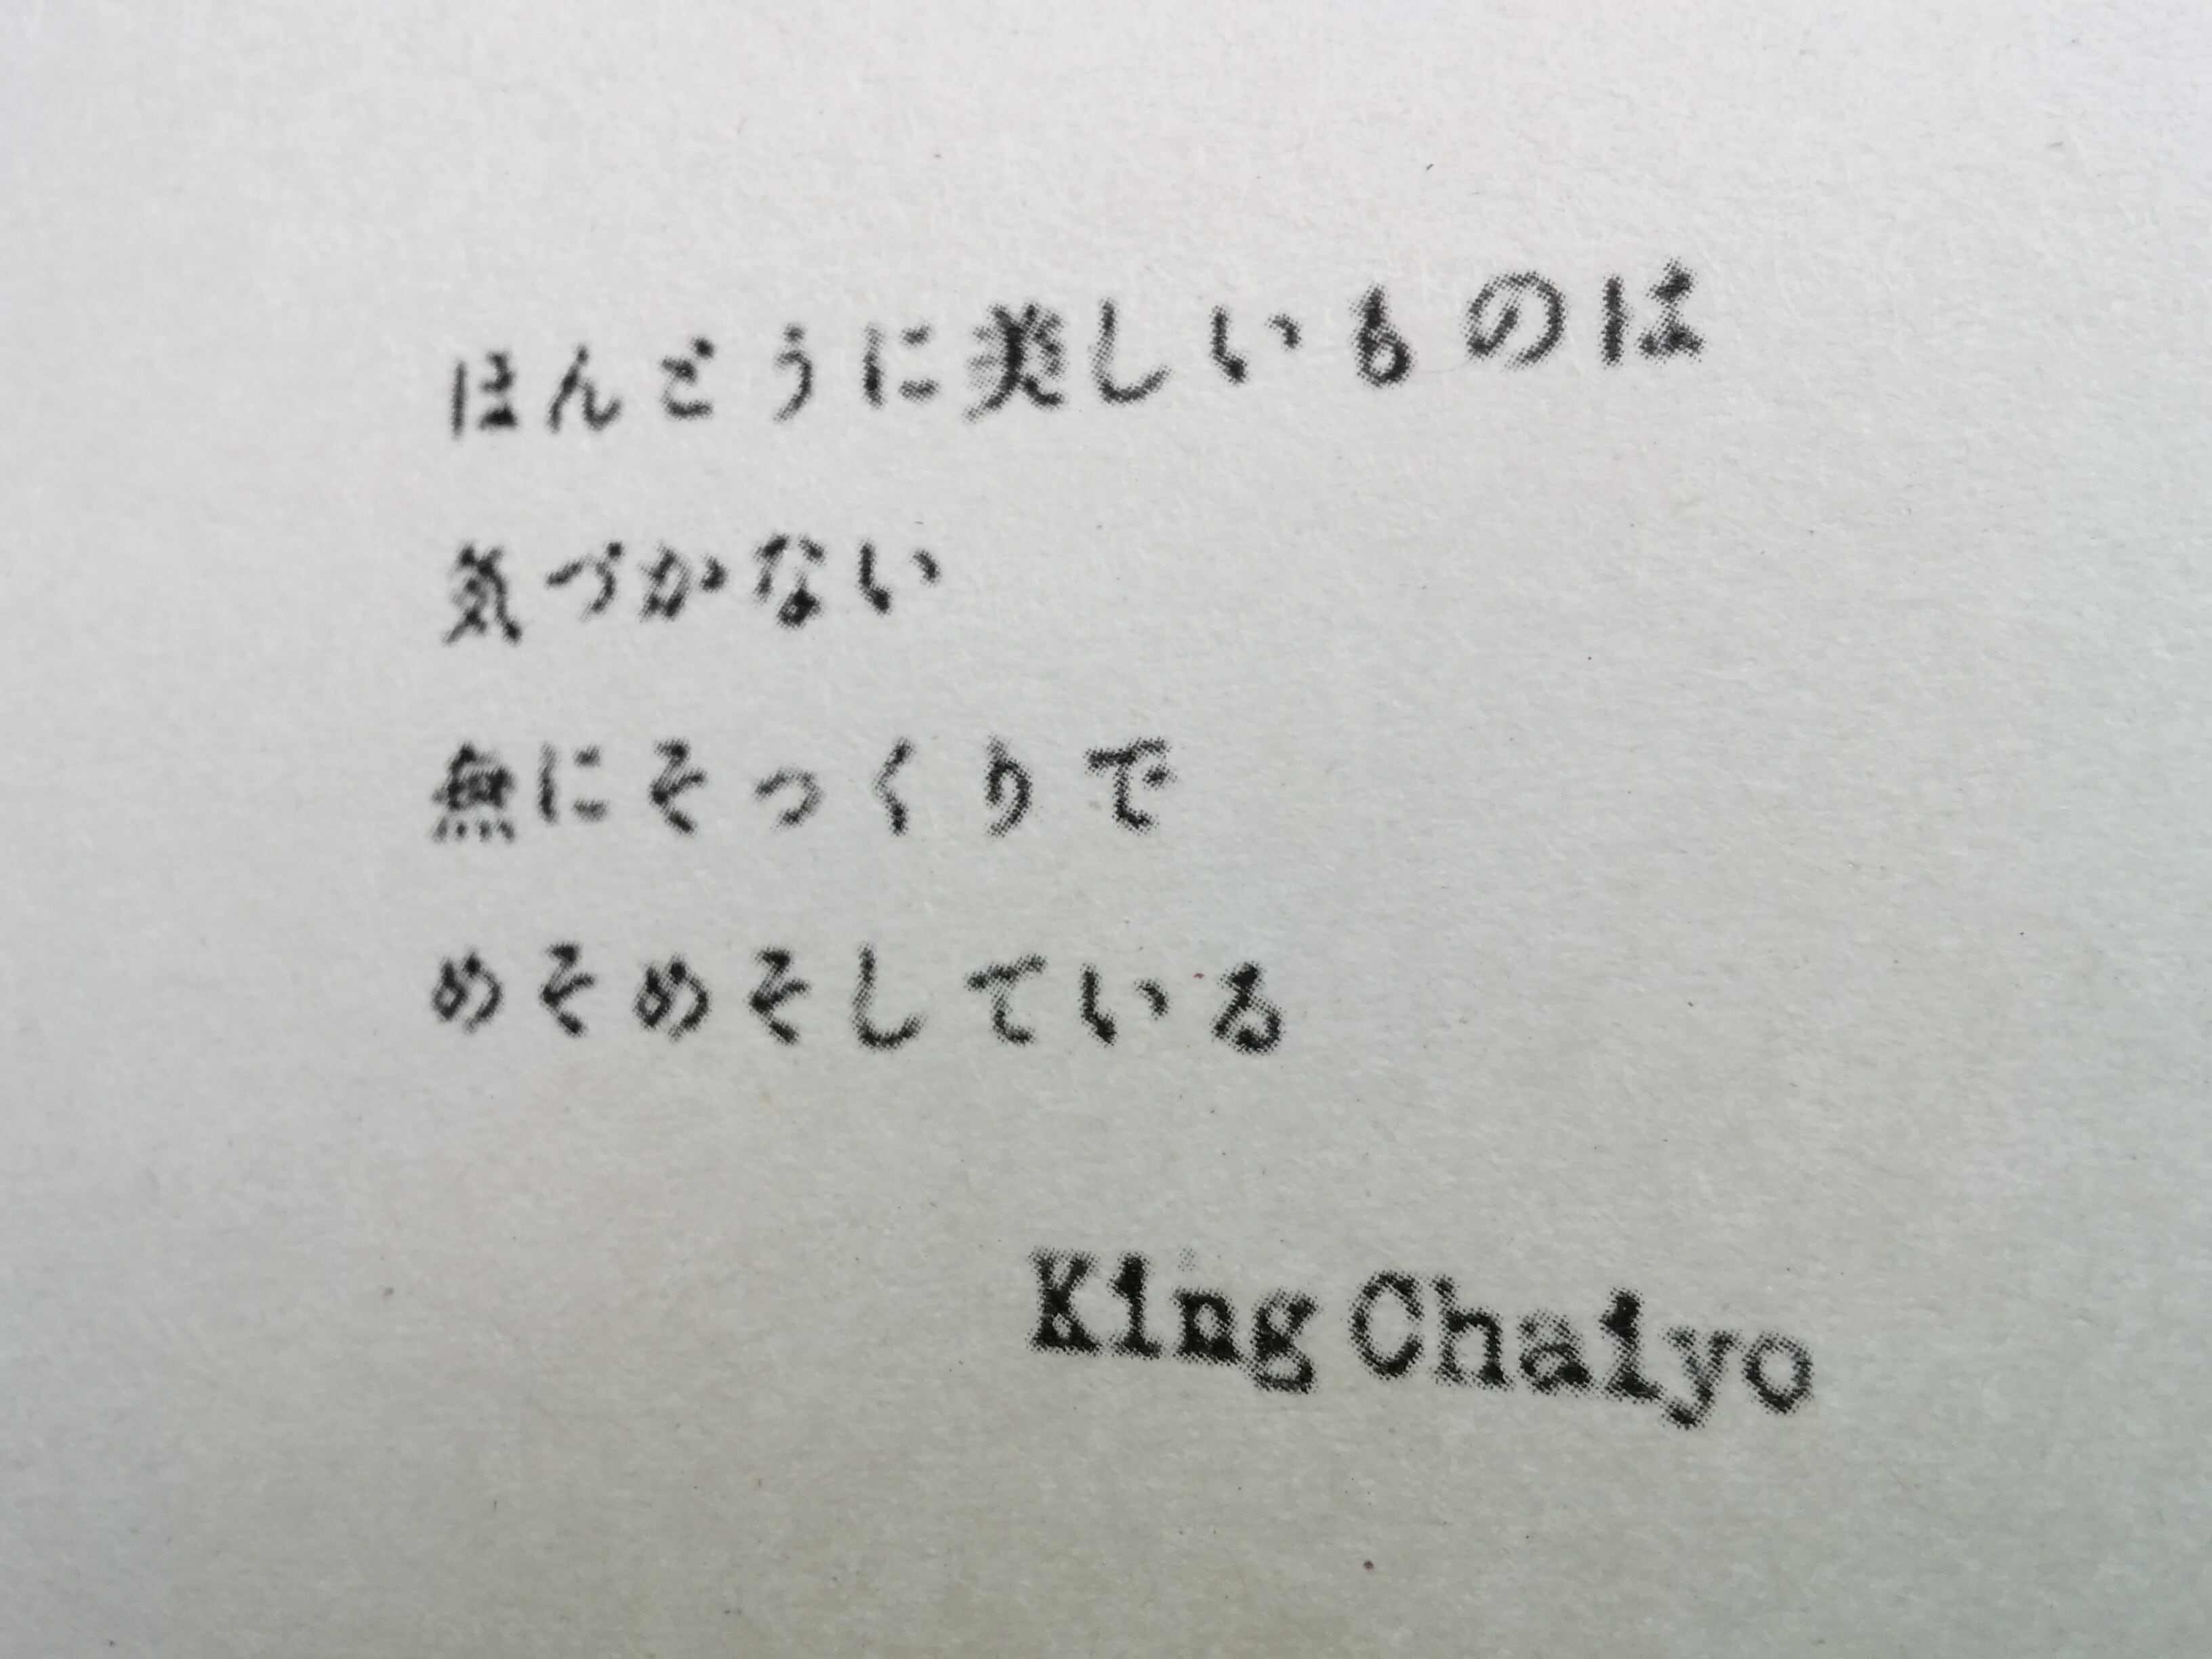 ほんとうに美しいものは
気づかない
無にそっくりで
めそめそしている
King Chaiyo